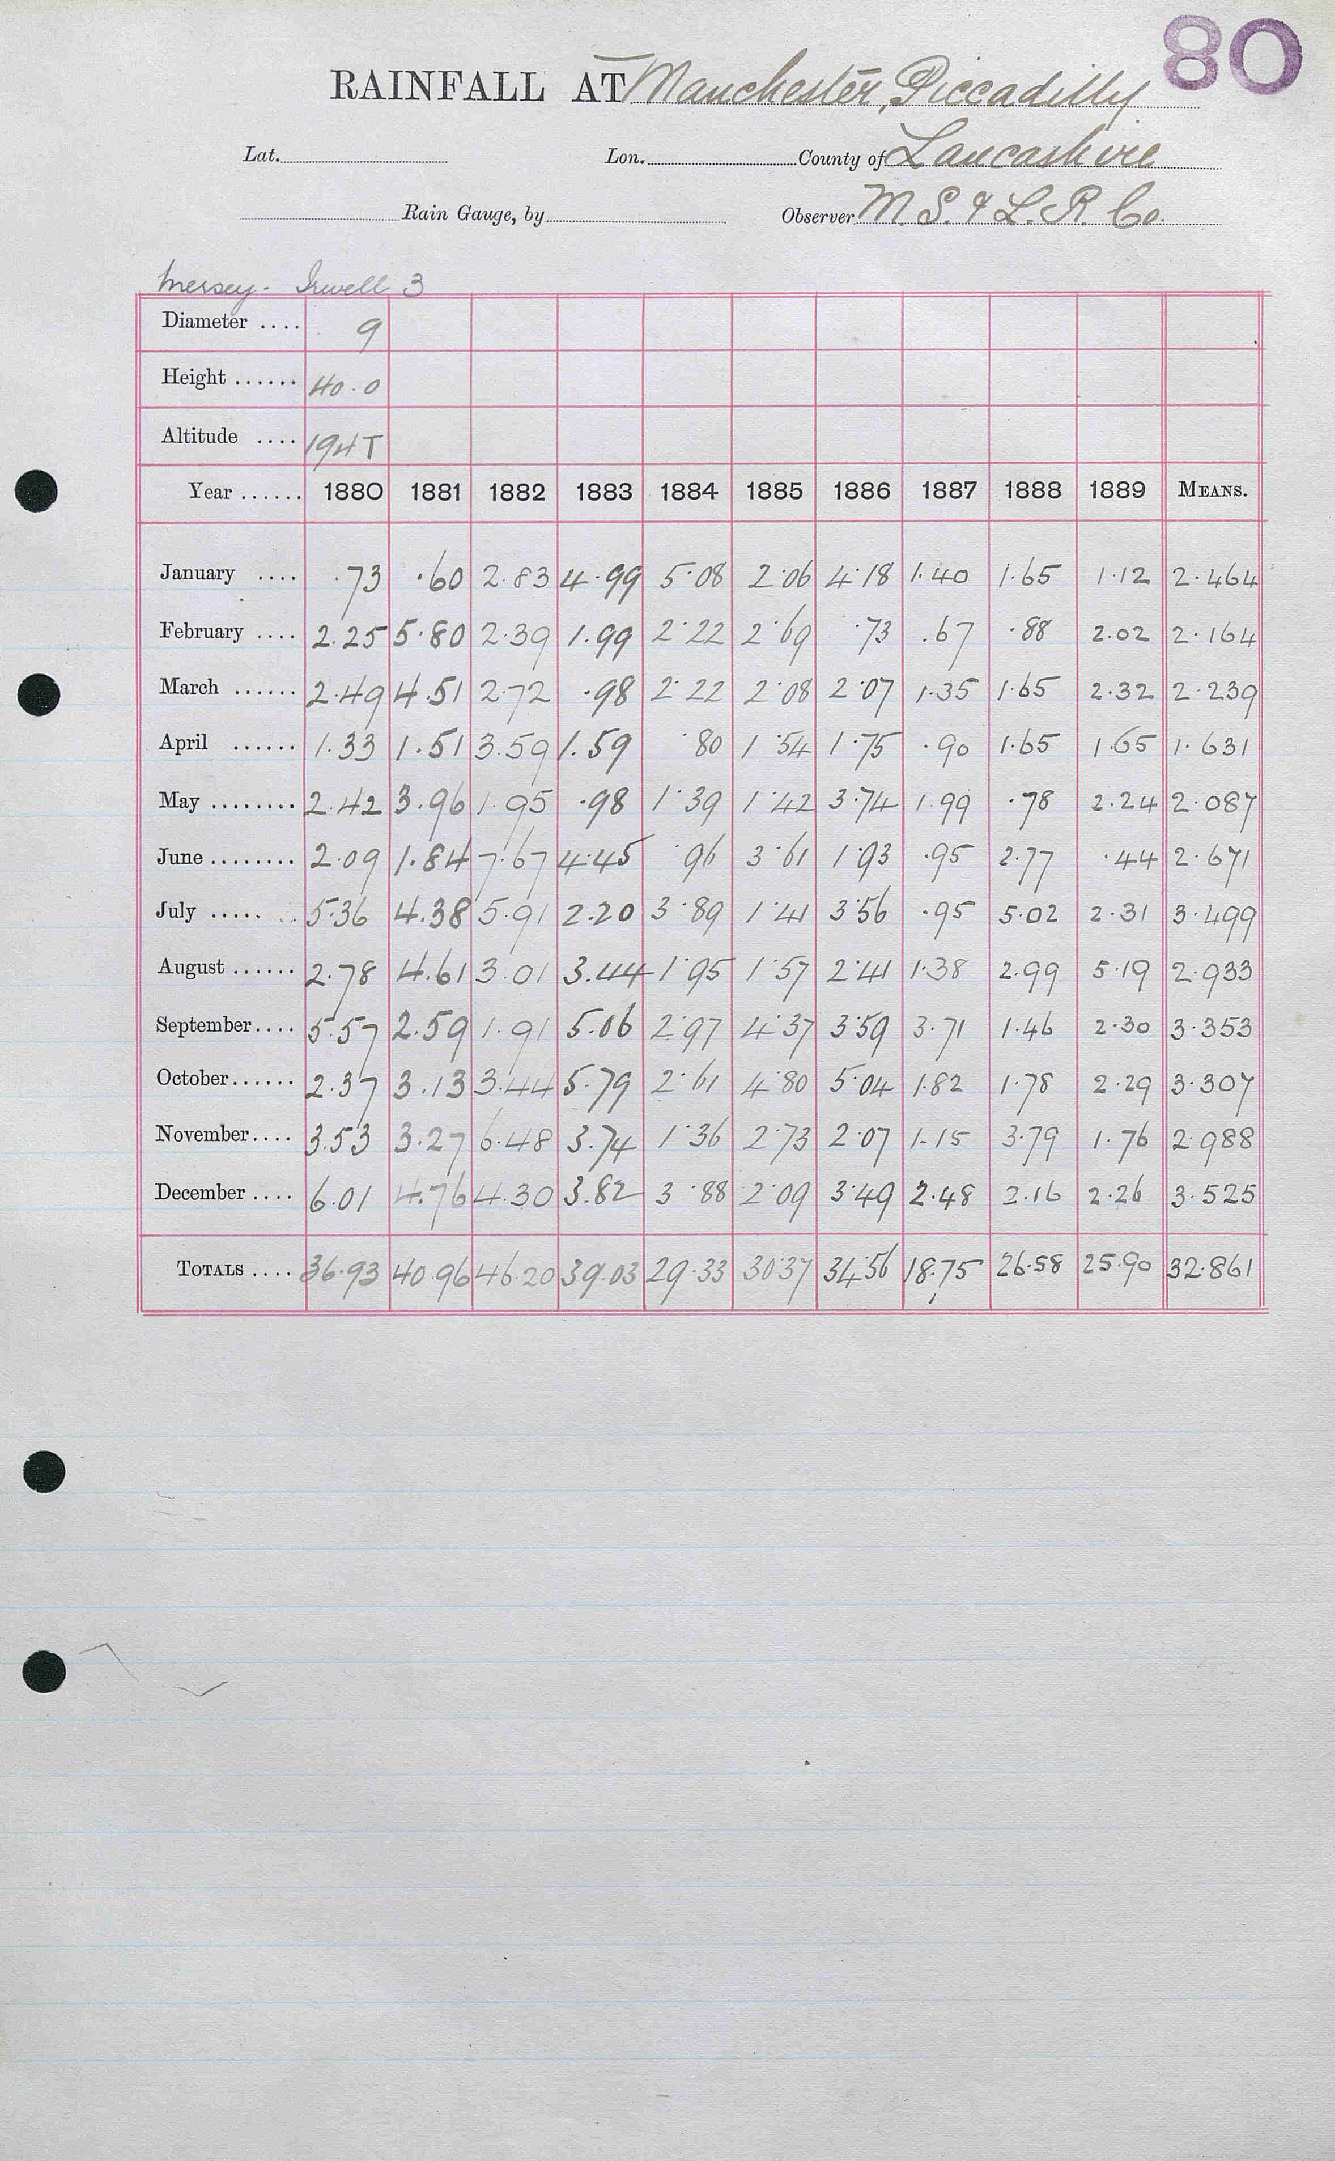 80
RAINFALL AT Manchester, Piccadilly
Lat. Lon. County of Lancashire
Rain Gauge, by Observer M. S. & L. R. Co.
Mersey - Irwell 3
Diameter .... 9
Height ...... 40.0
Altitude .... 194T
Year ...... 1880 1881 1882 1883 1884 1885 1886 1887 1888 1889 MEANS.
January .... .73 .60 2.83 4.99 5.08 2.06 4.18 1.40 1.65 1.12 2.464
February .... 2.25 5.80 2.39 1.99 2.22 2.69 .73 .67 .88 2.02 2.164
March ...... 2.49 4.51 2.72 .98 2.22 2.08 2.07 1.35 1.65 2.32 2.239
April ...... 1.33 1.51 3.59 1.59 .80 1.54 1.75 .90 1.65 1.65 1.631
May ........ 2.42 3.96 1.95 .98 1.39 1.42 3.74 1.99 .78 2.24 2.087
June ........ 2.09 1.84 7.67 4.45 .96 3.61 1.93 .95 2.77 .44 2.671
July ...... 5.36 4.38 5.91 2.20 3.89 1.41 3.56 .95 5.02 2.31 3.499
August ...... 2.78 4.61 3.01 3.44 1.95 1.57 2.41 1.38 2.99 5.19 2.933
September.... 5.57 2.59 1.91 5.06 2.97 4.37 3.59 3.71 1.46 2.30 3.353
October...... 2.37 3.13 3.44 5.79 2.61 4.80 5.04 1.82 1.78 2.29 3.307
November.... 3.53 3.27 6.48 3.74 1.36 2.73 2.07 1.15 3.79 1.76 2.988
December .... 6.01 4.76 4.30 3.82 3.88 2.09 3.49 2.48 2.16 2.26 3.525
TOTALS .... 36.93 40.96 46.20 39.03 29.33 30.37 34.56 18.75 26.58 25.90 32.861